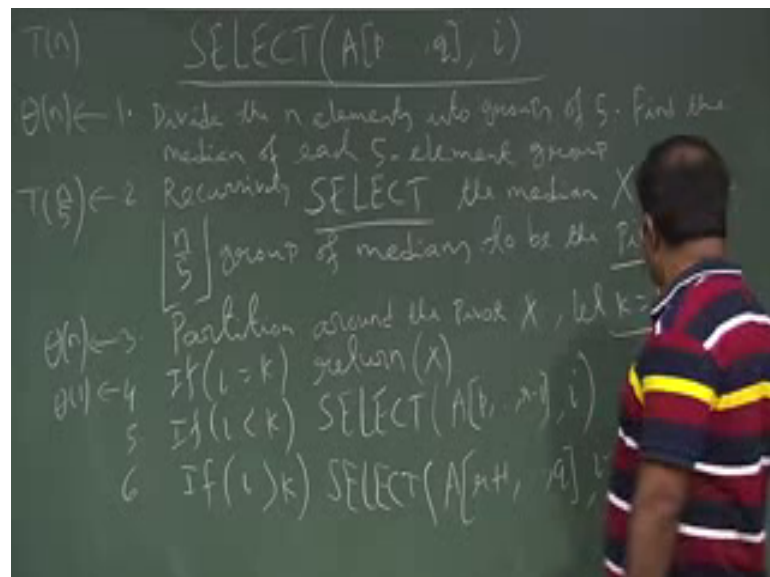 T(n) SELECT(A[p, ,q], i)
θ(n) ← 1. Divide the n elements into groups of 5. Find the
median of each 5-element group
T(n/5) ← 2 Recursively SELECT the median X
⌊n/5⌋ group of medians to be the
θ(n) ← 3. Partition around the Pivot X, let k=
θ(1) ← 4 If (i = k) return (X)
5 If (i < k) SELECT (A[p, ,r-1], i)
6 If (i > k) SELECT (A[r+1, ,q],